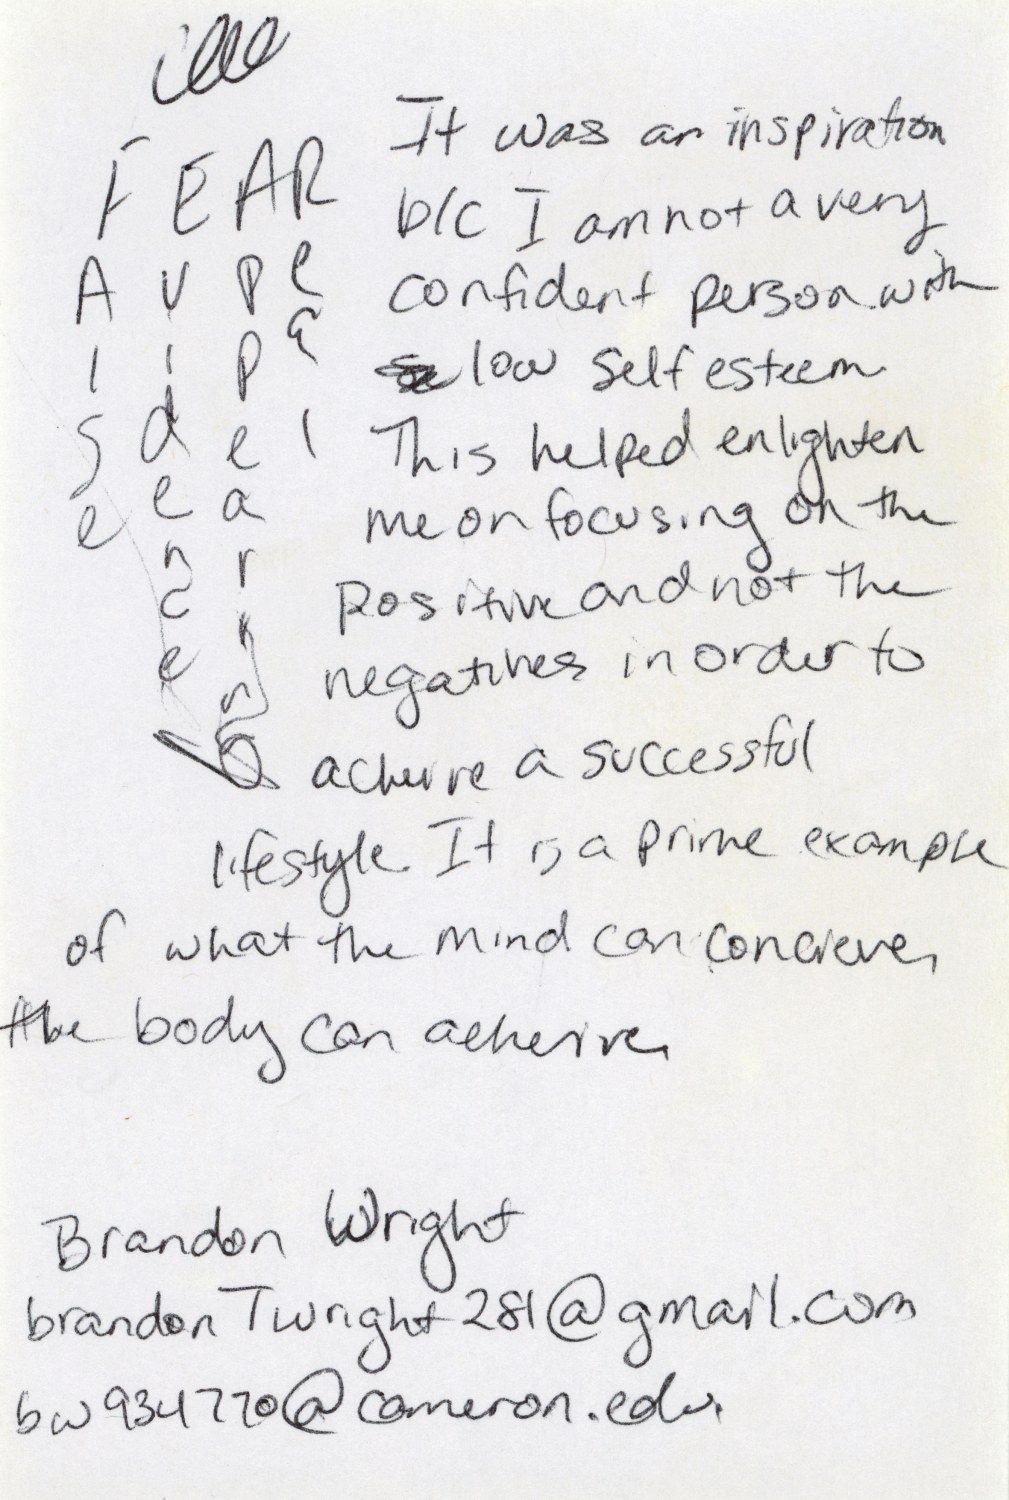 FEAR
False
Evidence
Appearing
Real
It was an inspiration
b/c I am not a very
confident person with
low self esteem
This helped enlighten
me on focusing on the
positive and not the
negatives in order to
acheive a successful
lifestyle. It is a prime example
of what the mind can concieve,
the body can acheive.
Brandon Wright
brandonTwright281@gmail.com
bw934770@cameron.edu